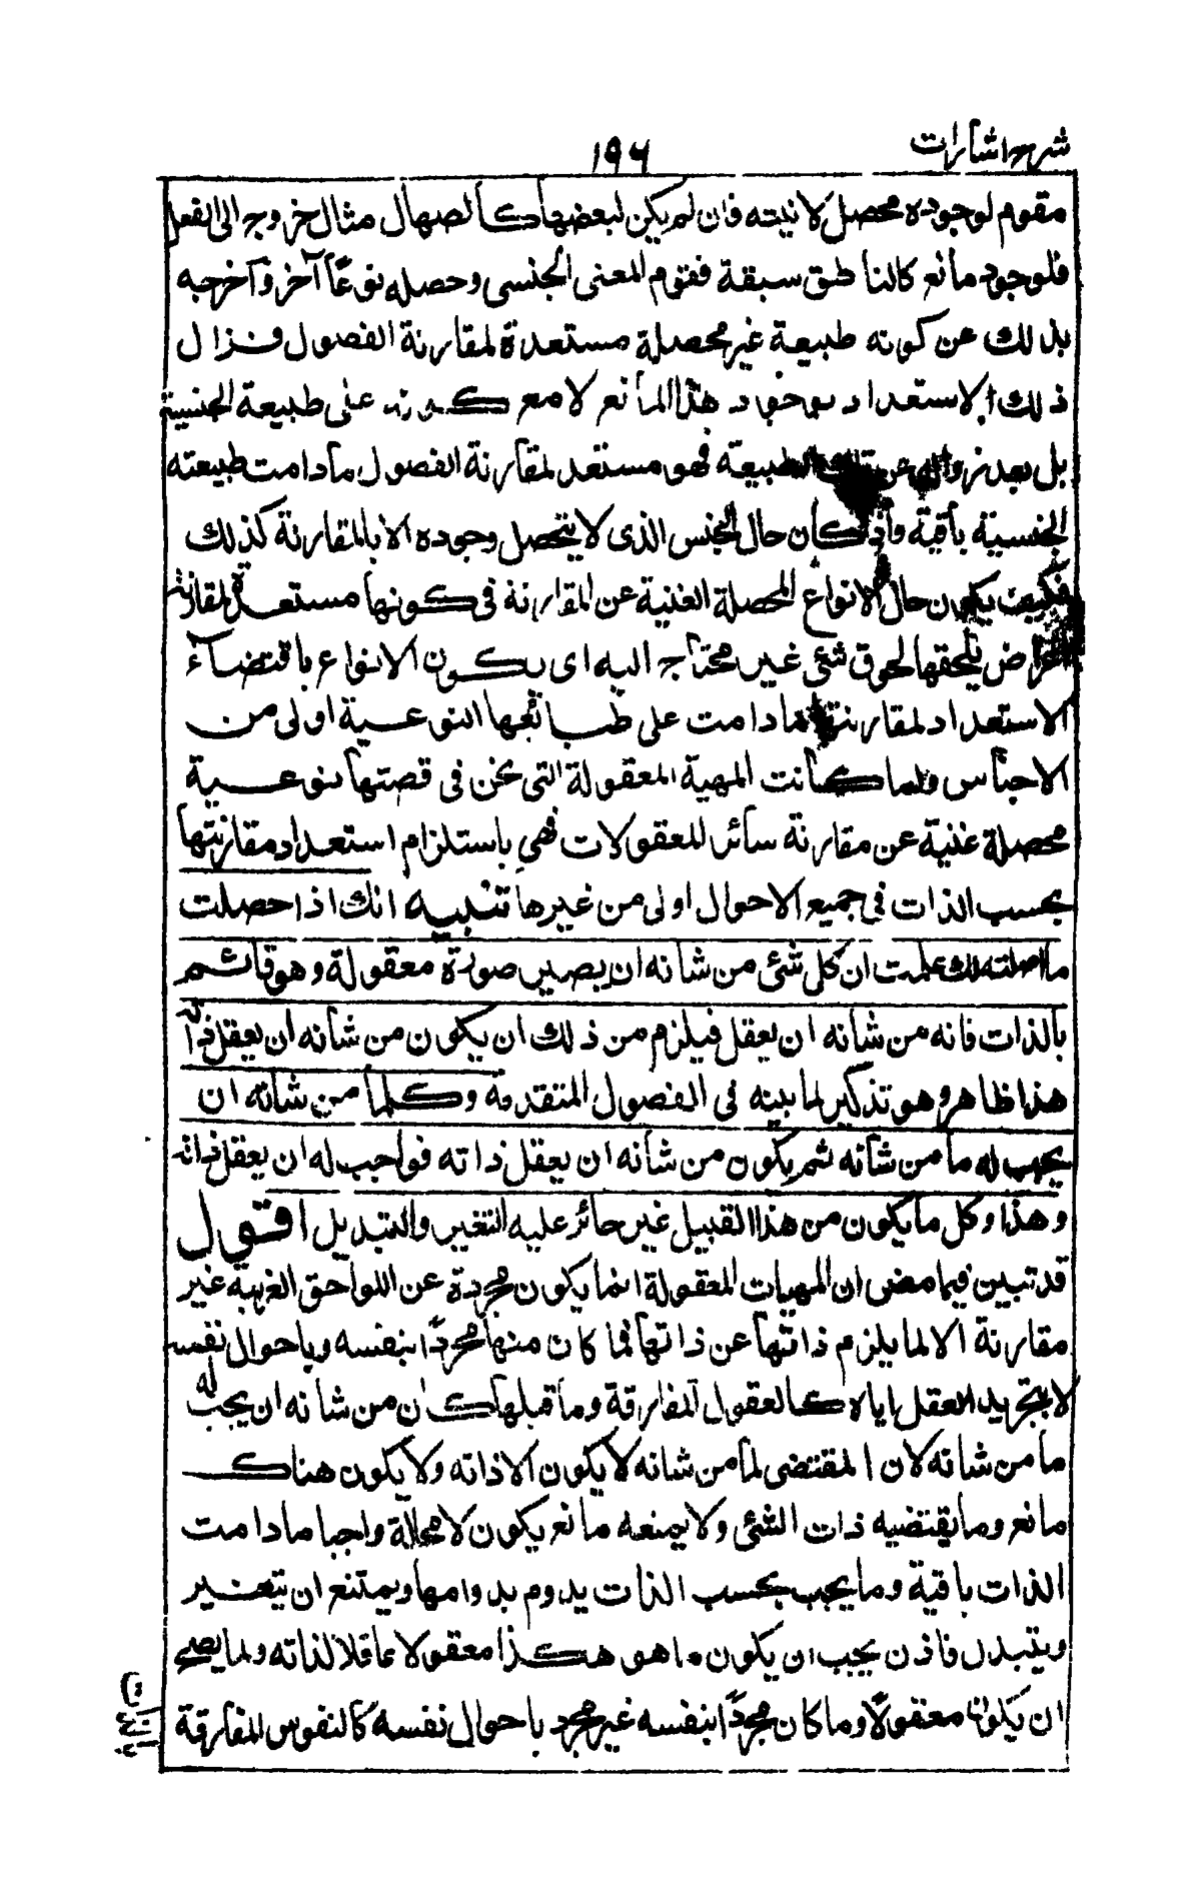 شرح اشارات
۱۹۶
مقوم لوجوده محصل لانيته فان لم يكن لبعضها كالصهال مثال خروجه الى الفعل
فلوجود مانع كالناطق سبقة فقوم المعنى الجنسى وحصله نوعًا آخر وآخرجه
بذلك عن كونه طبيعة غير محصلة مستعدة لمقارنة الفصول فزال
ذلك الاستعداد بوجود هذا المانع لا مع كونه على طبيعة الجنسية
بل بعد زواله عن تلك الطبيعته فهو مستعد لمقارنة الفصول مادامت طبيعته
الجنسية باقية واذا كان حال الجنس الذى لا يتحصل وجوده الا بالمقارنة كذلك
فكيف يكون حال الانواع المحصلة الغنية عن المقارنة فى كونها مستعدة لمقارنة
اعراض يلحقها لحوق شئ غير محتاج اليه اى يكون الانواع باقتضاء
الاستعداد لمقارنتها مادامت على طبائعها النوعية اولى من
الاجناس ولما كانت المهية المعقولة التى نحن فى قصتها نوعية
محصلة غنية عن مقارنة سائر المعقولات فهى باستلزام استعداد مقارنتها
بحسب الذات فى جميع الاحوال اولى من غيرها تنبيه انك اذا حصلت
ما اصلته لك علمت ان كل شئ من شانه ان يصير صورة معقولة وهو قائم
بالذات فانه من شانه ان يعقل فيلزم من ذلك ان يكون من شانه ان يعقل ذاته
هذا ظاهر وهو تذكير لما بينه فى الفصول المتقدمة وكلما من شانه ان
يجب له ما من شانه ثم يكون من شانه ان يعقل ذاته فواجب له ان يعقل ذاته
وهذا وكل ما يكون من هذا القبيل غير جائز عليه التغير والتبديل اقول
قد تبين فيما مضى ان المهيات المعقولة انما يكون مجردة عن اللواحق الغريبة غير
مقارنة الا لما يلزم ذاتها عن ذاتها فما كان منها مجردًا بنفسه وباحوال نفسه
لا بتجريد العقل اياه كالعقول المفارقة وما قبلها كان من شانه ان يجب له
ما من شانه لان المقتضى لما من شانه لا يكون الا ذاته ولا يكون هناك
مانع وما يقتضيه ذات الشئ ولا يمنعه مانع يكون لا محالة واجبا مادامت
الذات باقية وما يجب بحسب الذات يدوم بدوامها ويمتنع ان يتغير
ويتبدل فاذن يجب ان يكون ما هو هكذا معقولا عاقلا لذاته ولما يصح
ان يكون معقولًا وما كان مجردًا بنفسه غير مجرد باحوال نفسه كالنفوس المفارقة